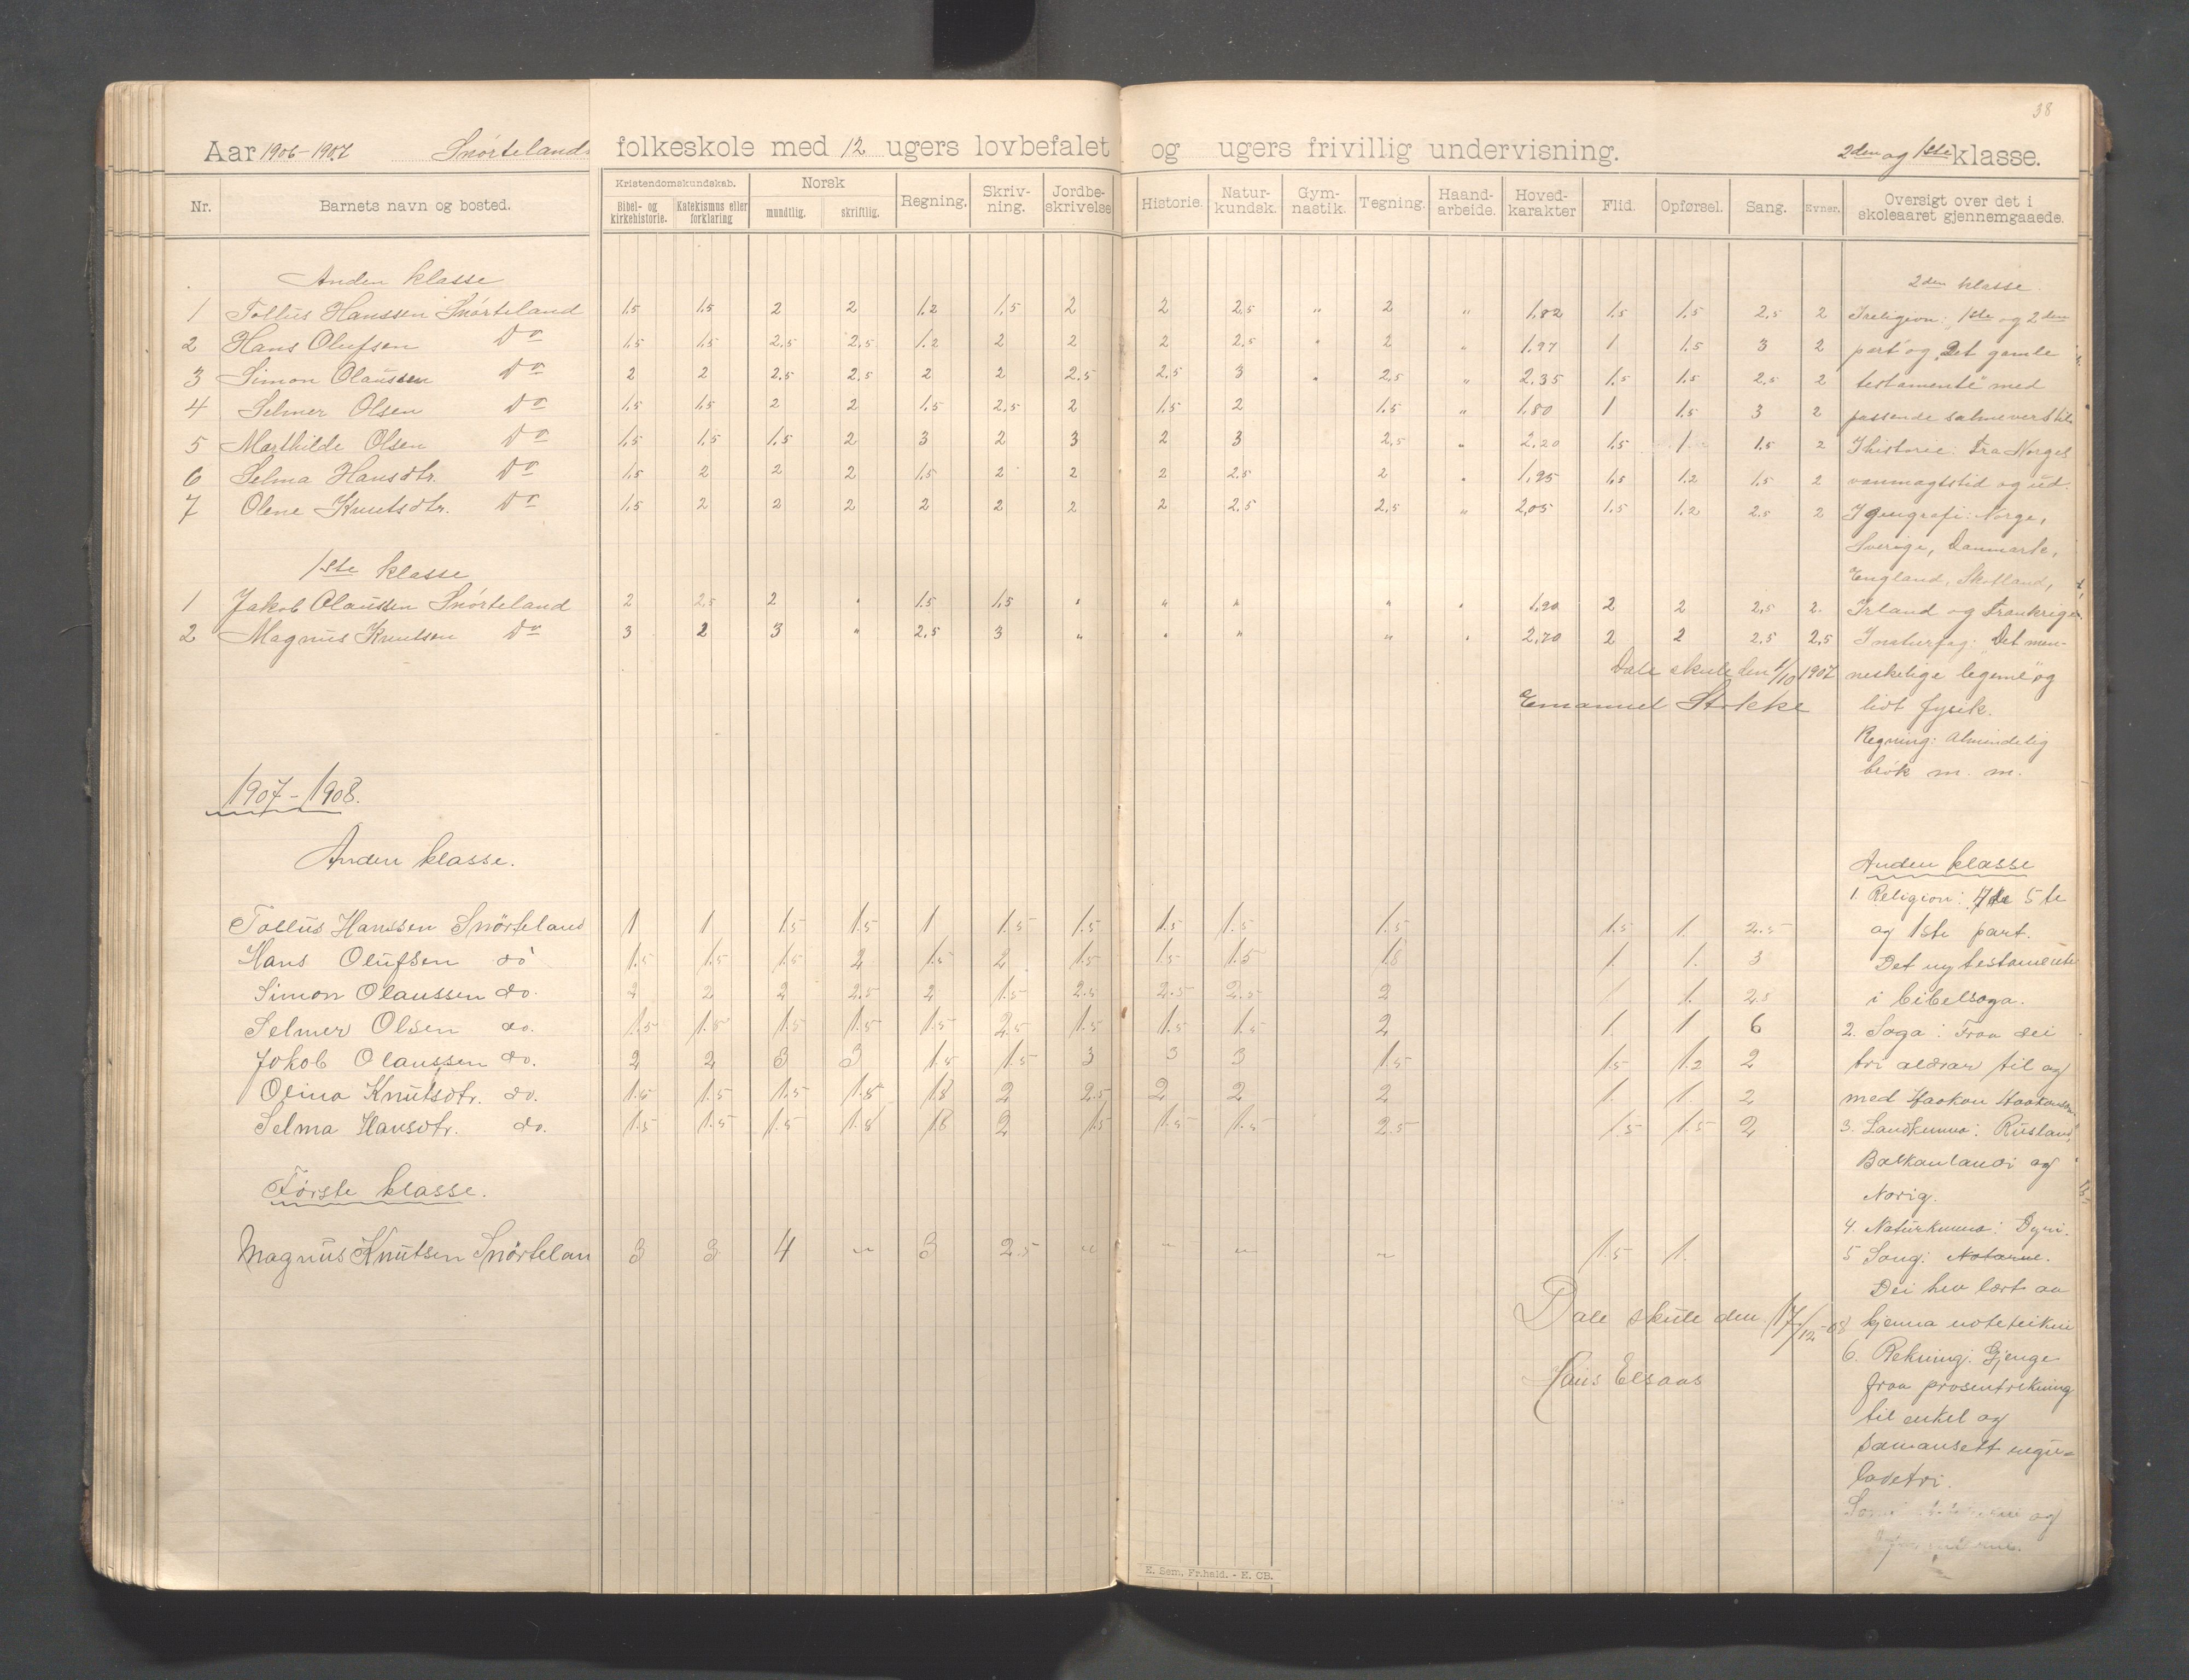 38
Aar 1906-1907 Snörtelands folkeskole med 12 ugers lovbefalet og ugers frivillig undervisning. 2den og 1ste klasse.
Nr. Barnets navn og bosted. Kristendomskundskab. Bibel- og kirkehistorie. Katekismus eller forklaring Norsk mundtlig. skriftlig. Regning. Skriv-ning. Jordbe-skrivelse Historie. Natur-kundsk. Gym-nastik. Tegning. Haand-arbeide. Hoved-karakter Flid. Opførsel. Sang. Evner. Oversigt over det i skoleaaret gjennemgaaede.
Anden klasse 2den klasse
1 Tollus Hanssen Snörteland 1.5 1.5 2 2 1.2 1.5 2 2 2.5 " 2 " 1.82 1.5 1.5 2.5 2 I religion: 1ste og 2den
2 Hans Olufsen Do 1.5 1.5 2.5 2.5 1.2 2 2 2 2.5 " 2 " 1.97 1 1.5 3 2 part og "Det gamle
3 Simon Olaussen Do 2 2 2.5 2.5 2 2 2.5 2.5 3 " 2.5 " 2.35 1.5 1.5 2.5 2 testamente" med
4 Selmer Olsen Do 1.5 1.5 2 2 1.5 2.5 2 1.5 2 1.5 " 1.80 1 1.5 3 2 passende salmevers til.
5 Marthilde Olsen Do 1.5 1.5 1.5 2 3 2 3 2 3 2.5 " 2.20 1.5 1 1.5 2 I historie: Fra Norges
6 Selma Hansdtr. Do 1.5 2 2 2 1.5 2 2 2 2.5 2 " 1.95 1.5 1.2 1.5 2 vanmagtstid og ud.
7 Olene Knutsdtr. Do 1.5 2 2 2 2 2 2 2 2.5 2.5 " 2.05 1.5 1.2 2.5 2 I geografi: Norge,
Sverige, Danmark,
1ste klasse England, Skotland,
1 Jakob Olaussen Snörteland 2 2.5 2 " 1.5 1.5 " " " " " 1.90 2 2 2.5 2 Irland og Frankrige
2 Magnus Knutsen Do 3 2 3 " 2.5 3 " " " " " 2.70 2 2 2.5 2.5 I naturfag: "Det men-
Dale skule den 1/10 1907 neskelige legeme" og
Emanuel Stokke lidt fysik.
Regning: Almindelig
brök m. m.
1907-1908.
Anden klasse. Anden klasse
1. Religion: 4de 5te
Tollus Hanssen Snörteland 1 1 1.5 1.5 1 1.5 1.5 1.5 1.5 1.5 1.5 1 2.5 og 1ste part.
Hans Olufsen do 1.5 1.5 1.5 2 1.5 2 1.5 1.5 1.5 1.8 1 1. 3 Det ny testamente
Simon Olaussen do. 2 2 2 2.5 2 1.5 2.5 2.5 2.5 2 1 1. 2.5 i bibelsoga.
Selmer Olsen do. 1.5 1.5 1.5 1.5 1.5 2.5 1.5 1.5 1.5 2 1. 1 6 2. Soga: Fraa dei
Jokob Olaussen do. 2 2 3 3 1.5 1.5 3 3 3 1.5 1.5 1.2 2 tri aldrar til og
Olina Knutsdtr. do. 1.5 1.5 1.5 1.8 1.8 2 2.5 2 2 2 1. 1. 2 med Haakon Haakonson
Selma Hansdtr. do. 1.5 1.5 1.5 1.8 1.8 2 1.5 1.5 1.5 2.5 1.5 1.5 2 3. Landkunna: Rusland,
Balkanlandi og
Förste klasse. Norig.
4. Naturkunna: Dyri.
Magnus Knutsen Snörtelan 3 3 4 " 3 2.5 " " " " 1.5 1. 5 Song: Notarne.
Dei hev lært aa
Dale skule den 17/12-08 kjenna noteteikni
6. Rekning: Gjenge
Hans Elsaas fraa prosentrekning
til enkel og
samansett regu-
ladetri.
og
E. Sem. Fr.hald. - E. CB.